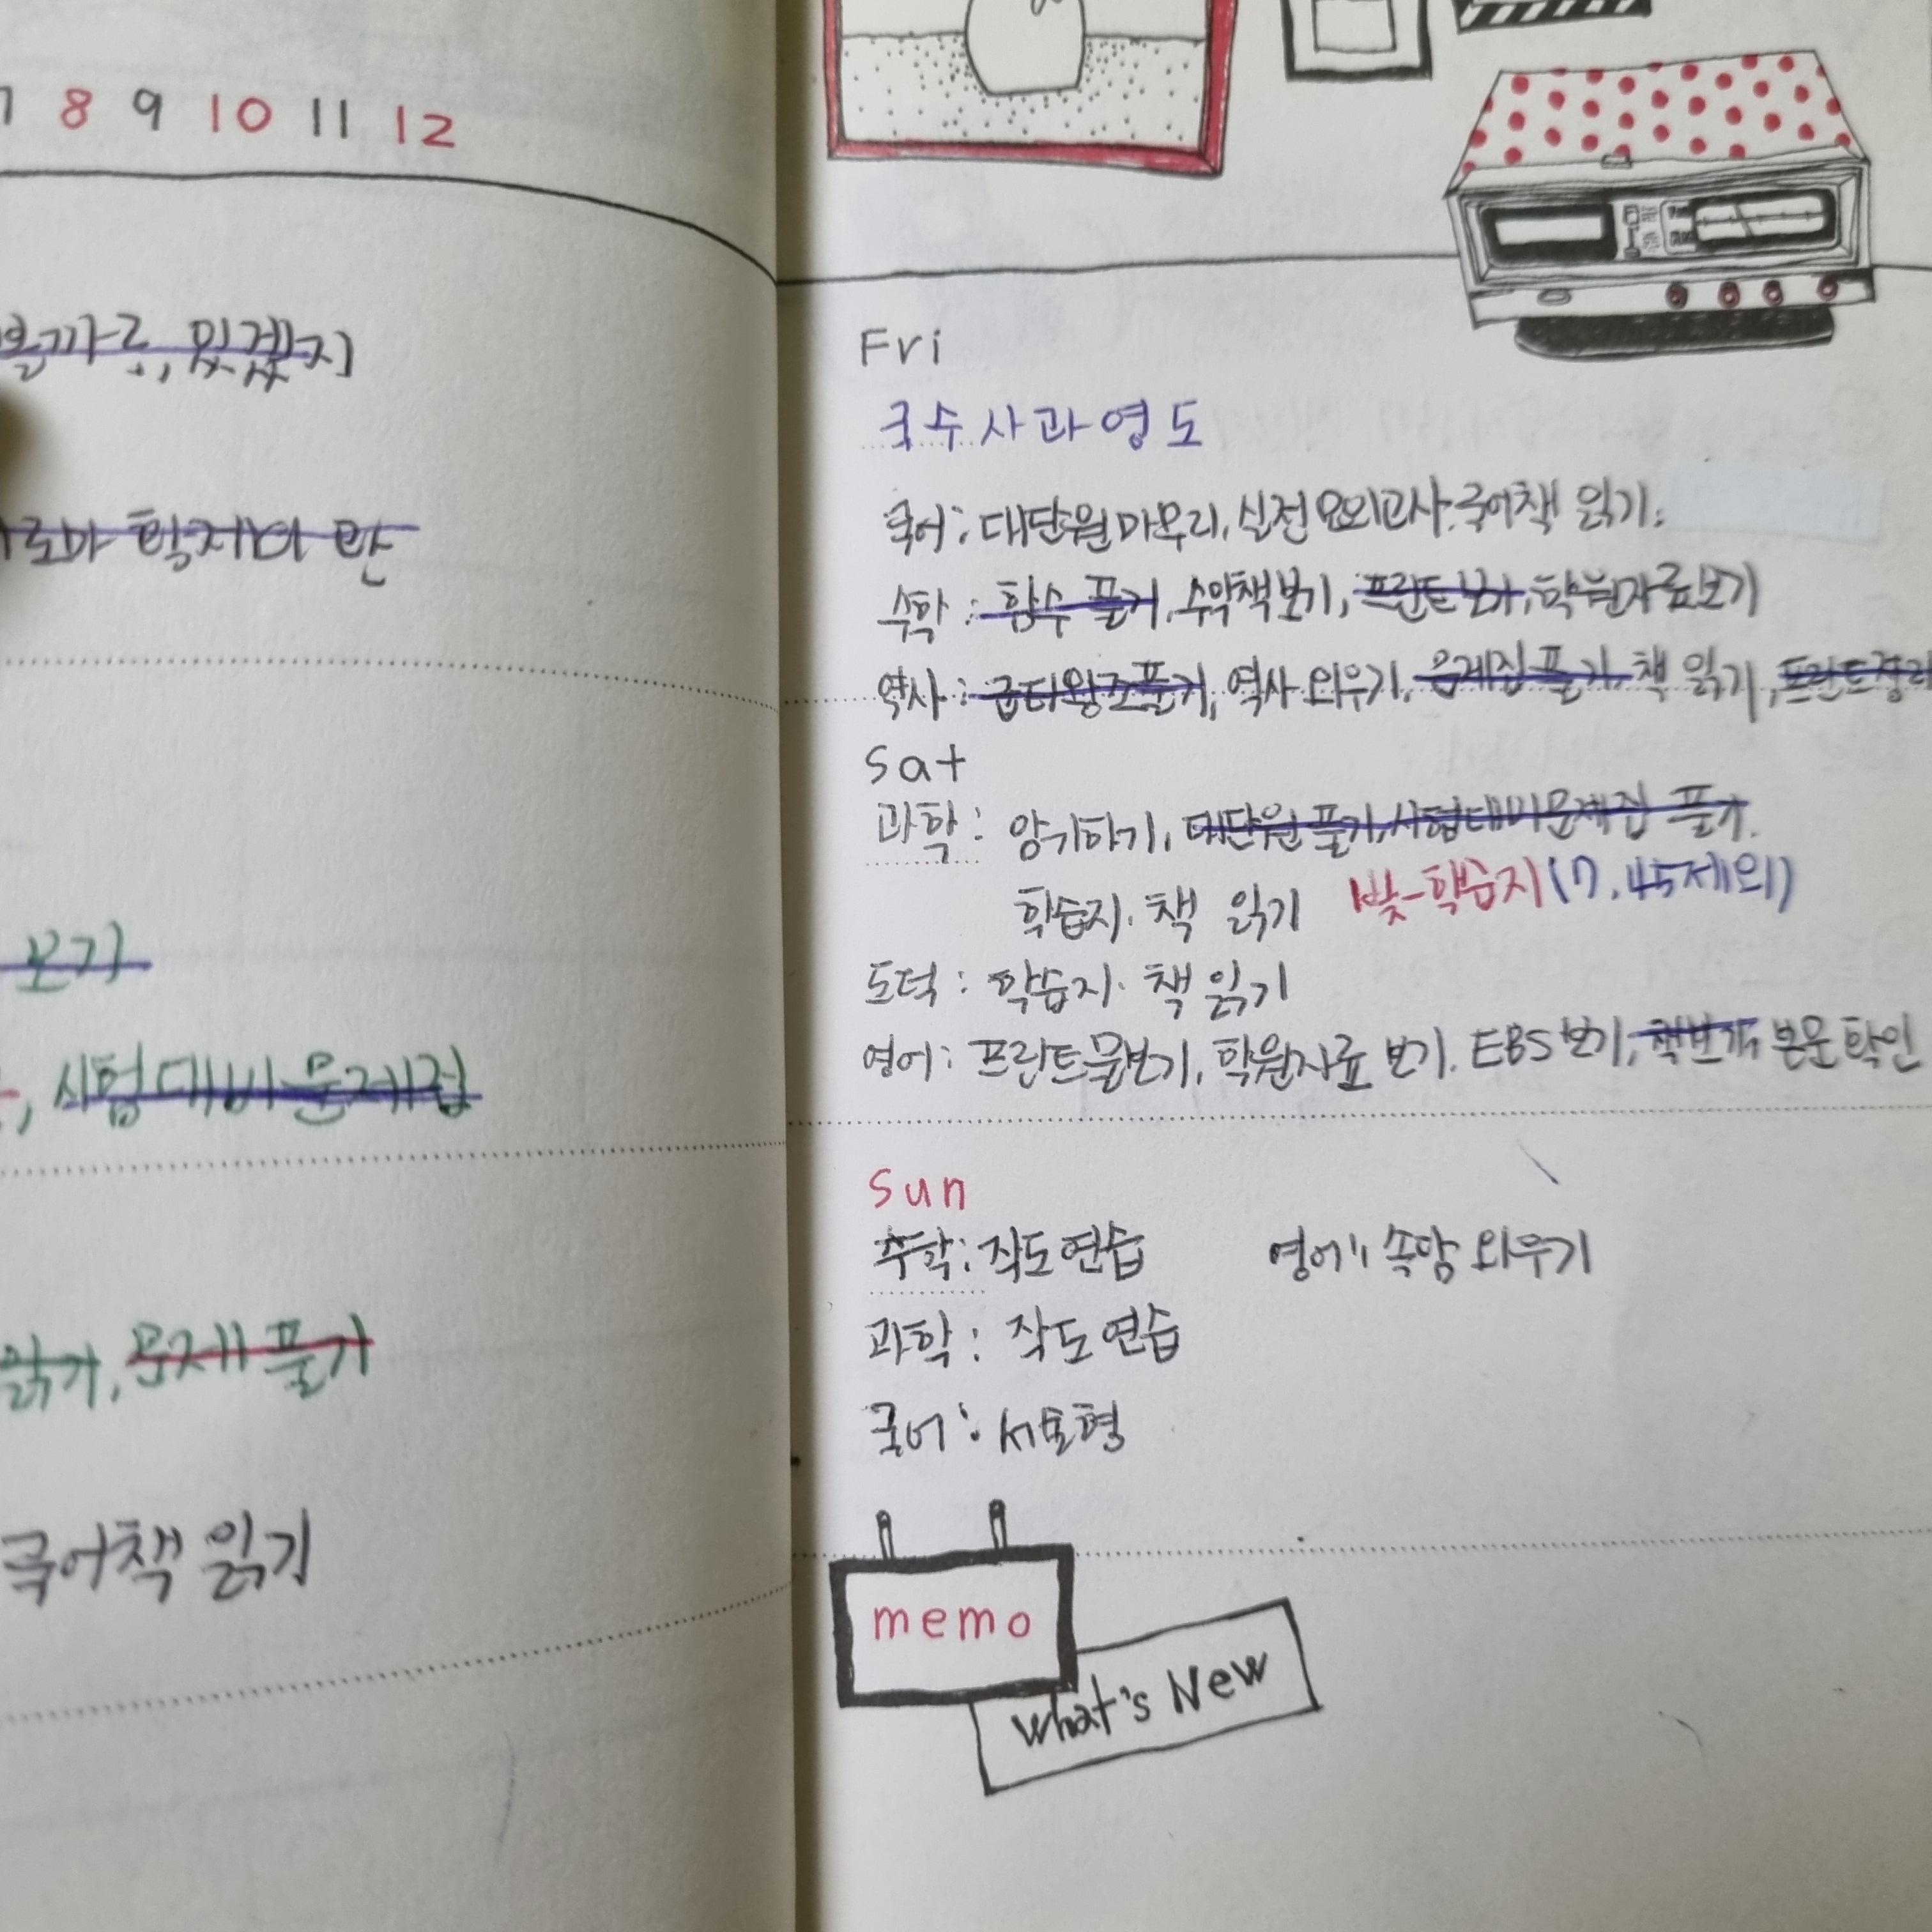 8 9 10 11 12
있겠지
보기
시험대비 문제집
읽기, 문제 풀기
국어책 읽기
Fri
국 수 사 과 영 도
국어: 대단원 마무리, 실전모의고사. 국어책 읽기.
수학: 함수 풀기, 수학책보기, 프린트 보기, 학원자료보기
역사: 왕조풀기, 역사 외우기, 문제집 풀기, 책 읽기, 프린트정리
Sat
과학: 암기하기, 대단원 풀기, 시험대비문제집 풀기.
학습지. 책 읽기 빛-학습지(7.45제외)
도덕: 학습지. 책 읽기
영어: 프린트물보기, 학원자료 보기. EBS 보기, 책보기, 본문 확인
Sun
수학: 작도연습 영어: 속담 외우기
과학: 작도연습
국어: 서술형
memo
What's New